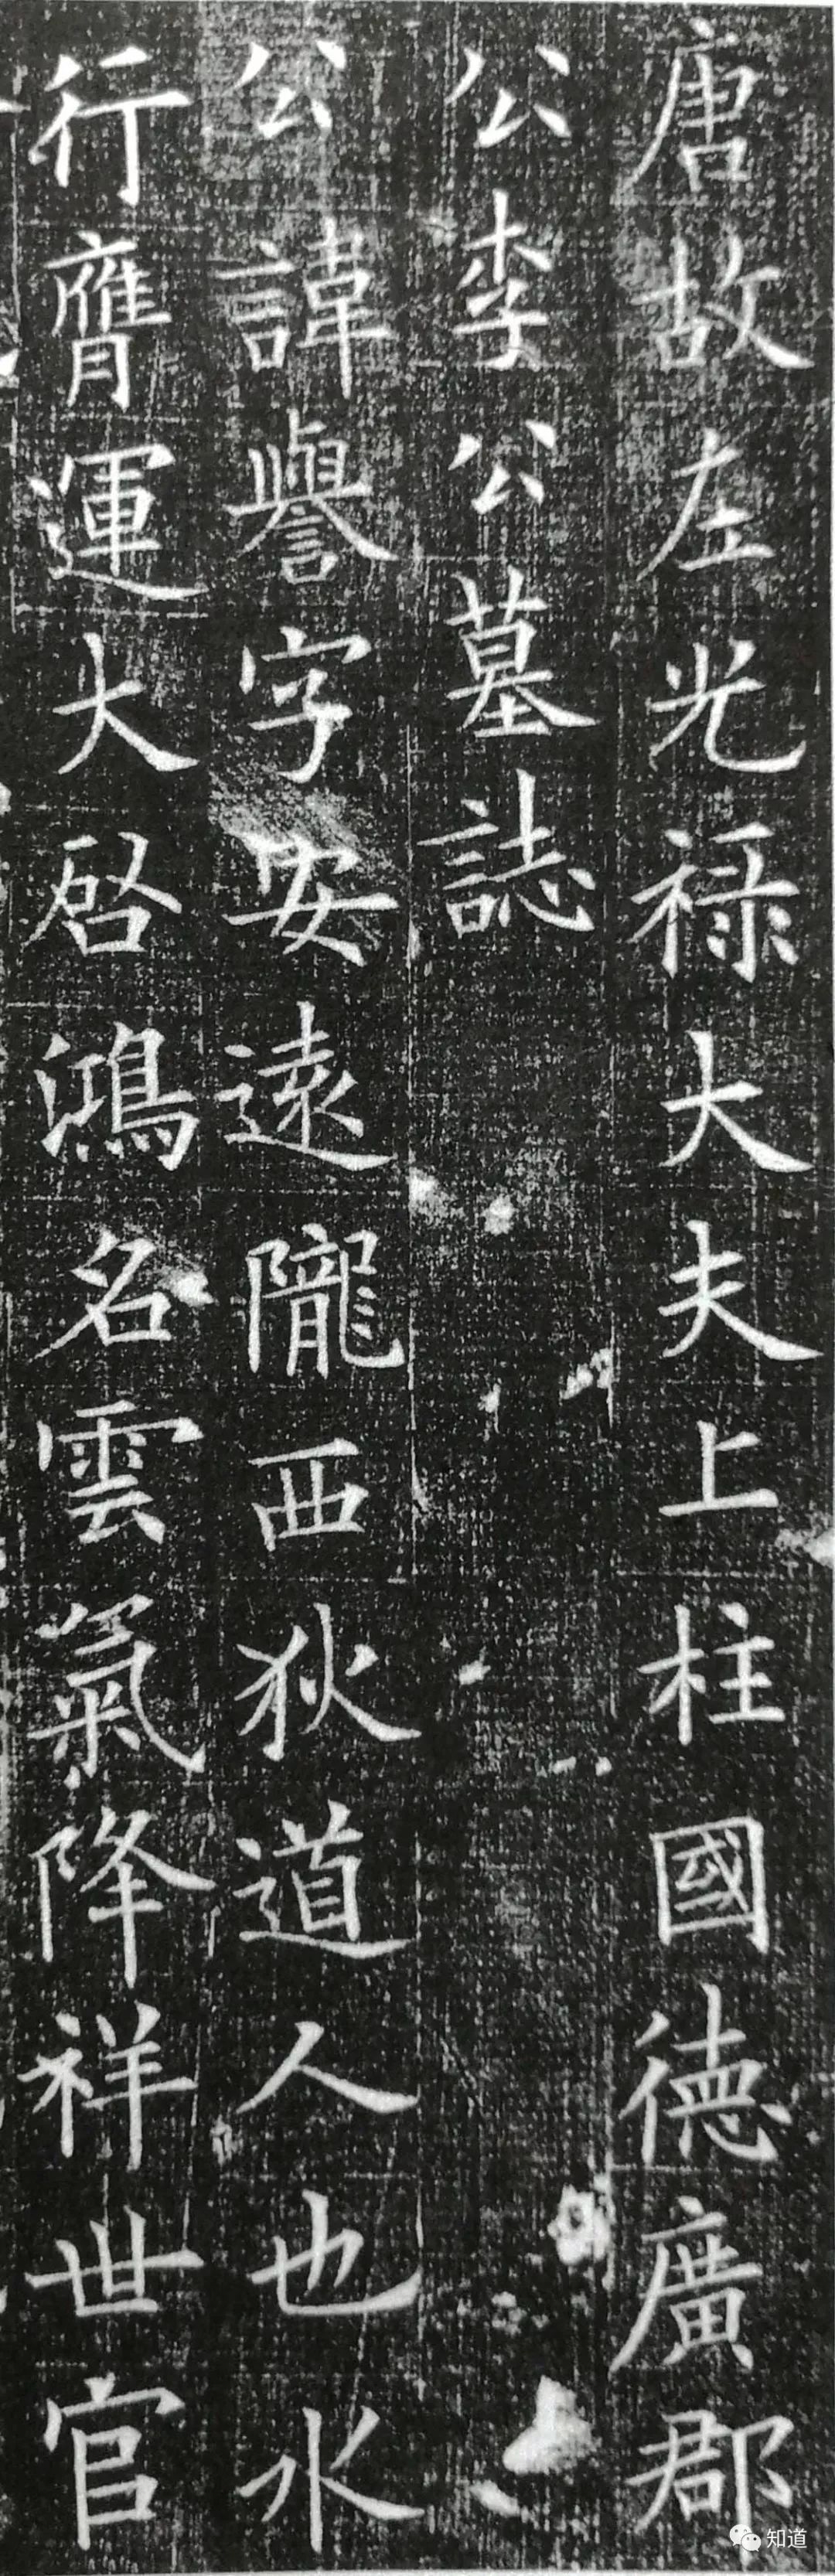 唐故左光祿大夫上柱國德廣郡
公李公墓誌
公諱譽字安遠隴西狄道人也水
行膺運大啓鴻名雲氣降祥世官
知道